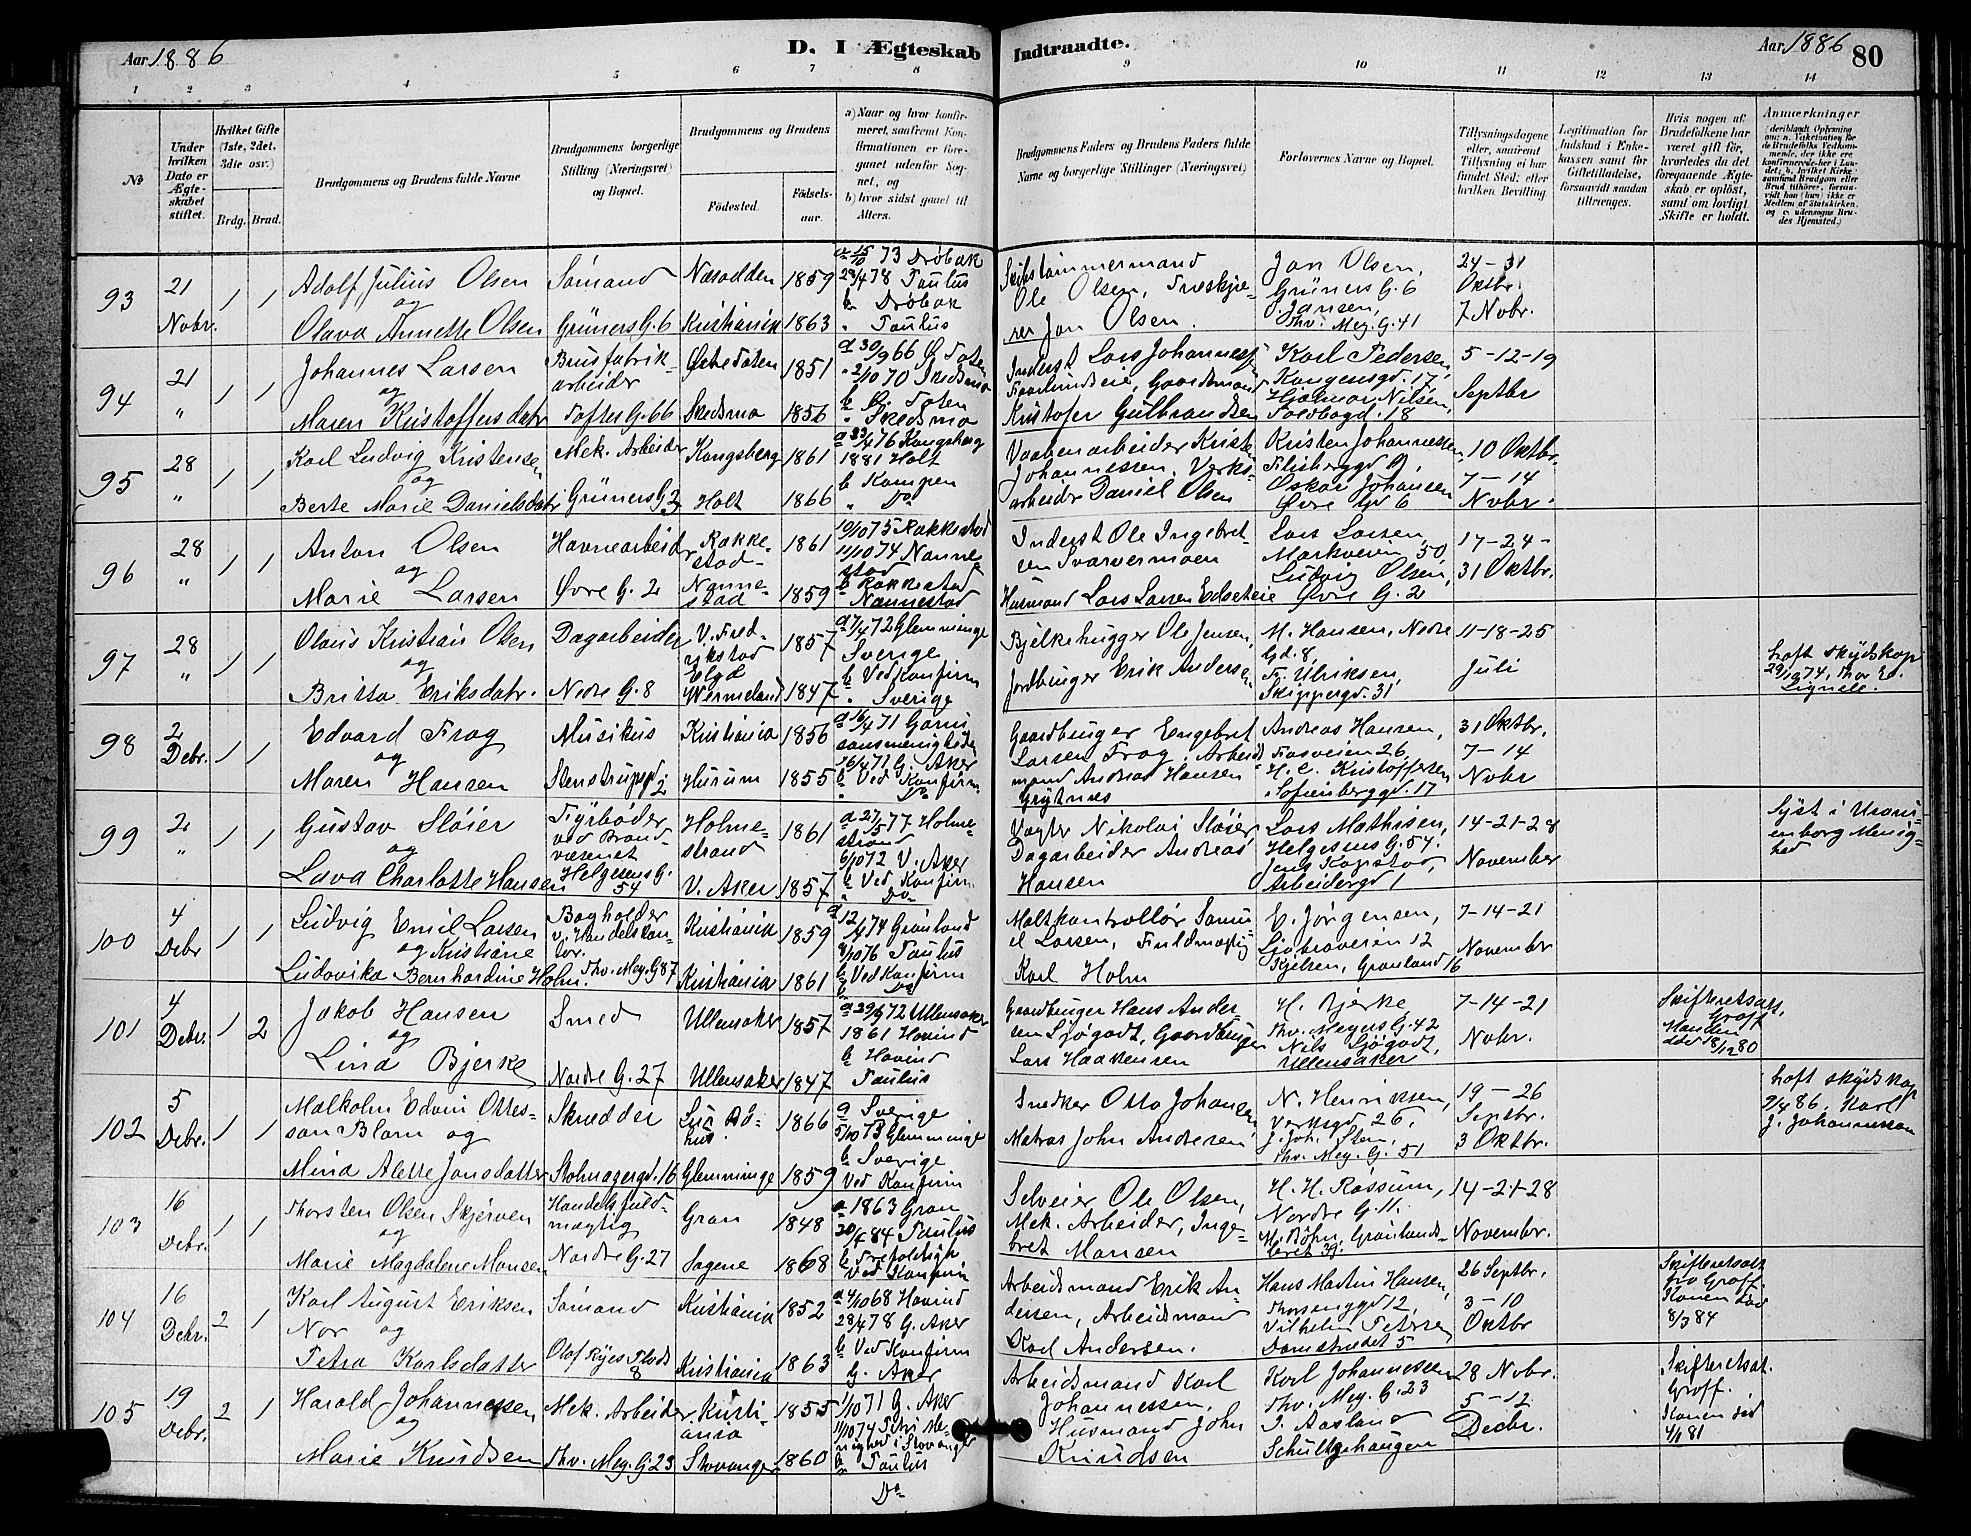 Aar 1886
D. I Ægteskab Indtraadte.
Aar 1886
80
1 2 3 4 5 6 7 8 9 10 11 12 13 14
No
Under hvilken Dato er Ægteskabet stiftet.
Hvilket Gifte (1ste, 2det, 3die osv.)
Brdg. Brud.
Brudgommens og Brudens fulde Navne
Brudgommens borgerlige Stilling (Næringsvei) og Bopæl.
Brudgommens og Brudens
Fødested. Fødselsaar.
a) Naar og hvor konfirmeret, saafremt Konfirmationen er foregaaet udenfor Sognet, og
b) hvor sidst gaaet til Alters.
Brudgommens Faders og Brudens Faders fulde Navne og borgerlige Stillinger (Næringsvei)
Forlovernes Navne og Bopæl.
Tillysningsdagene eller, saafremt Tillysning ei har fundet Sted, efter hvilken Bevilling.
Legitimation for Indskud i Enkekassen samt for Giftetilladelse, forsaavidt saadan tiltrænges.
Hvis nogen af Brudefolkene har været gift før, hvorledes da det foregaaende Ægteskab er opløst, samt om lovligt Skifte er holdt.
Anmærkninger
93 21 Nobr. 1 1
Adolf Julius Olsen
og
Olava Annette Olsen
Sømand
Grüners G. 6
Næsodden 1859
Kristiania 1863
a 15/10 73 Drøbak
28/4 78 Paulus
b Drøbak
" Paulus
Skibstømmermand
Ole Olsen, Træskjærer Jan Olsen.
Jan Olsen,
Grüners G. 6
J. Jansen,
Thv. Mey. G. 41
24-31
Oktbr.
7 Nobr.
94 21 " 1 1
Johannes Larsen
og
Maren Kristoffersdatr
Brusfabrikarbeider
Toftes G. 66
Østre Toten 1851
Skedsmo 1856
a 30/9 66 Ø. Toten
" 2/10 70 Skedsmo
b Ø. Toten
" Skedsmo
Inderst Lars Johannessen
Gaardmand
Kristofer Gulbrandsen
Karl Pedersen,
Kongensgd. 17,
Hjalmar Nilsen,
Toldbogd. 18
5-12-19
Septbr
95 28 " 1 1
Karl Ludvig Kristensen
og
Berte Marie Danielsdatr
Mek. Arbeider
Grüners G. 2
Kongsberg 1861
Holt 1866
76 Kongsberg
1881 Holt
b Kampen
" Do
Vaabenarbeider Kristen
Johannessen, Verksarbeider Daniel Olsen
Kristen Johannessen
Oskar Johansen
Øvre Gd 6
10 Oktbr.
7-14
Nobr.
96 28 " 1 1
Anton Olsen
og
Marie Larsen
Havnearbeider
Øvre G. 2
Rakkestad 1861
Nannestad 1859
10/10 75 Rakkestad
11/10 74 Nannestad
b Rakkestad
" Nannestad
Inderst Ole Ingebretsen Svarvermoen
Husmand Lars Larsen
Lars Larsen,
Markveien 50
Ludvig Olsen,
Øvre G. 2
17-24-
31 Oktbr.
97 28 " 1 1
Olaus Kristian Olsen
og
Britta Eriksdatr.
Dagarbeider
Nedre G. 8
V. Fredrikstad 1857
Elgd
Wermeland 1847
72 Glemminge
Sverige
b Ved Konfirm
" Sverige
Bjelkehugger Ole Jensen,
Jordbruger Erik Andersen
M. Hansen, Nedre
Gd. 8
Fr. Ulriksen,
Skippergd. 31
11-18-25
Juli
haft skydskop
29/10 74, Thor Ed.
Lignell.
98 2 Debr. 1 1
Edvard Frog
og
Maren Hansen
Musikus
Stenstrupgd 2
Kristiania 1856
Hurum 1855
a 16/4 71 Garnisonsmenigheden
16/4 71 G. Aker
b Ved Konfirm
" Do
Gaardbruger Engebret
Larsen Frog, Arbeidsmand Andreas Hansen
Grytnes
Andreas Hansen,
Fosveien 26
H. C. Kristoffersen
Sofienberggd. 17
31 Oktbr.
7-14
Nobr
99 2 " 1 1
Gustav Sløier
og
Lava Charlotte Hansen
Fyrbøder
ved Brandvæsenet
Helgesens G.
54
Holmestrand 1861
V. Aker 1857
a 27/5 77 Holmestrand
6/10 72 V. Aker
b Ved Konfirm
" Do
Vagter Nikolai Sløier
Dagarbeider Andreas
Hansen
Lars Mathisen,
Helgesens G. 54.
Jens Kopstad,
Arbeidergd 1
14-21-28
November
Lyst i Uranienborg Menighed
100 4 Debr 1 1
Ludvig Emil Larsen
og Kristiane
Ludovika Bernhardine Holm.
Bogholder
v. Handelskontor.
Thv. Mey. G 87
Kristiania 1859
Kristiania 1861
a 12/4 74 Grønland
76 Paulus
b Ved Konfirm
" Do
Maltkontrollør Samuel Larsen, Fuldmægtig
Karl Holm
E. Jørgensen,
Ljabroveien 12
Kjelsen, Grønland 16
7-14-21
Novembr
101 4 Debr. 1 2
Jakob Hansen
og
Lina Bjerke
Smed
Nordre G. 27
Ullensaker 1857
Ullensaker 1847
a 29/9 72 Ullensaker
1861 Hovind
b Hovind
" Paulus
Gaardbruger Hans Andersen Ljøgodt, Gaardbruger
Lars Haakensen
H. Bjerke
Thv. Meyers G. 42
Nils Ljøgodt,
Ullensaker
7-14-21
Nobr.
Skifteretsatt.
Groff
Manden
død 18/12 80
102 5 Debr. 1 1
Malkolm Edvin Ottesson Blom og
Mina Alette Jonsdatter
Skrædder
Stolmagergd. 16
1866
Glemminge 1859
a Sverige
5/10 73 Glemminge
b Sverige
Ved Konfirm
Snedker Otto Johansen
Matros John Andersen
N. Henriksen,
Verksgd 26.
J. Joh. Sten,
Thv. Mey. G. 51
19-26
Septbr.
3 Oktbr.
haft skydskop
9/4 86, Karl
J. Johannessen
103 16 Debr. 1 1
Thorsten Olsen Skjerven
og
Marie Magdalene Mansen
Handelsfuldmægtig
Nordre G. 27
Gran 1848
Sagene 1868
a 1863 Gran
20/4 84 Paulus
b Trefoldigh
Ved Konfirm
Selveier Ole Olsen,
Mek. Arbeider, Ingebret Mansen
H. H. Røssum,
Nordre G. 11.
Grønlandsleret 39.
14-21-28
Novembr.
104 16 Debr. 2 1
Karl August Eriksen
Nor og
Petra Karlsdatter
Sømand
Olaf Ryes Plads
8
Kristiania 1852
Kristiania 1863
a 4/10 68 Hovind
28/4 78 G. Aker
b Ved Konfirm
G. Aker
Arbeidsmand Erik Andersen, Arbeidsmand
Karl Andersen.
Hans Martin Hansen,
Thorsenggd 12,
Vilhelm Petersen
Damstrædet 5
26 Septbr.
3-10
Oktbr
Skifteretsatt
fra Groff.
Konen død
8/3 84
105 19 Debr. 2 1
Harald Johannessen
og
Marie Knudsen
Mek. Arbeider
Thv. Mey. G. 23
Kristiania 1855
Stavanger 1860
1/10 71 G. Aker
11/10 74 Petri Menighed i Stavanger
b Paulus
Do
Arbeidsmand Karl
Johannessen,
Husmand John
Knudsen
Karl Johannessen
Thv. Mey. G. 23
J. Aasland
Schultzehaugen
28 Nobr.
5-12
Decbr.
Skifteretsat.
Groff.
Konen død
81